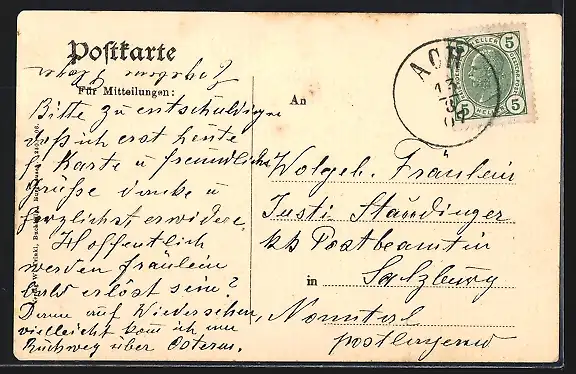 Postkarte
Für Mitteilungen:
Bitte zu entschuldigen
daß ich erst heute
f. Karte u freundliche
Grüße danke u
herzlichst erwidere.
Hoffentlich
werden Fräulein
bald erlöst sein?
Dann auf Wiedersehen,
vielleicht kom ich am
Rückweg über Ostern.
An
Wolgeb. Fräulein
Justi Staudinger
kk Postbeamtin
in Salzburg
Nonntal
postlagernd
ACH
13
5
HELLER
5
5